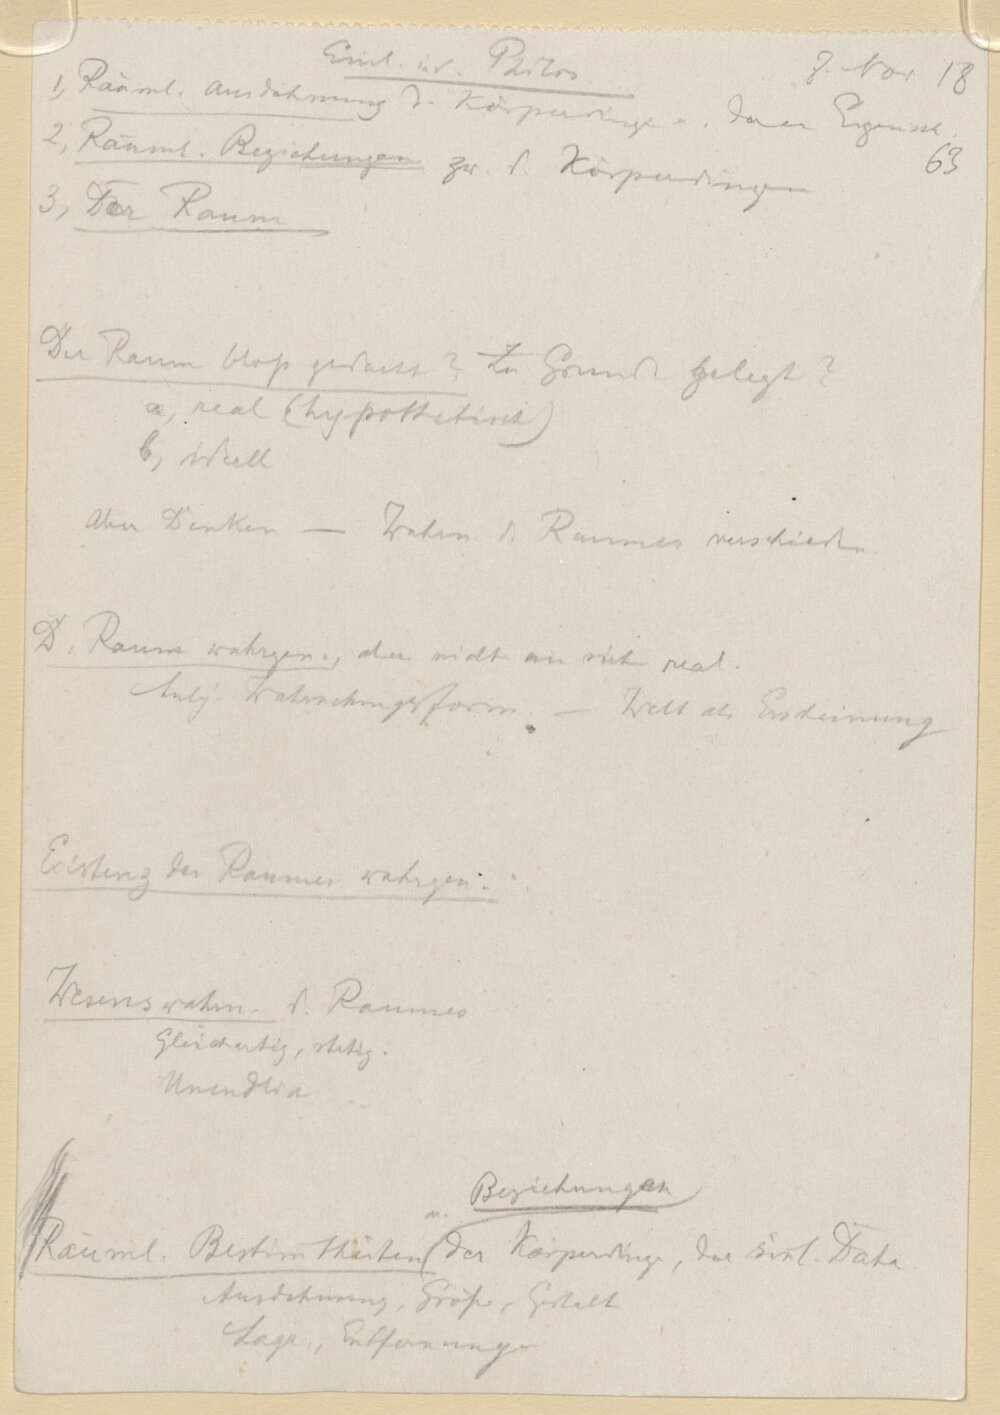 Einl. in d. Philos 8. Nov 18
1, Räuml. Ausdehnung d. Körperdinge u. deren Eigensch.
63
2, Räuml. Beziehungen zw. d. Körperdingen
3, Der Raum
Der Raum bloß gedacht? Zu Grunde gelegt?
a, real (hypothetisch)
b, ideell
Aber Denken — Wahrn d. Raumes verschieden.
D. Raum wahrgen., aber nicht an sich real.
Subj. Wahrnehmungsform. — Welt als Erscheinung
Existenz des Raumes wahrgen.
Wesenswahrn. d. Raumes
Gleichartig, stetig.
Unendlich
Beziehungen
Räuml. Bestimmtheiten u. der Körperdinge, der sinnl. Data
Ausdehnung, Größe, Gestalt
Lage, Entfernung